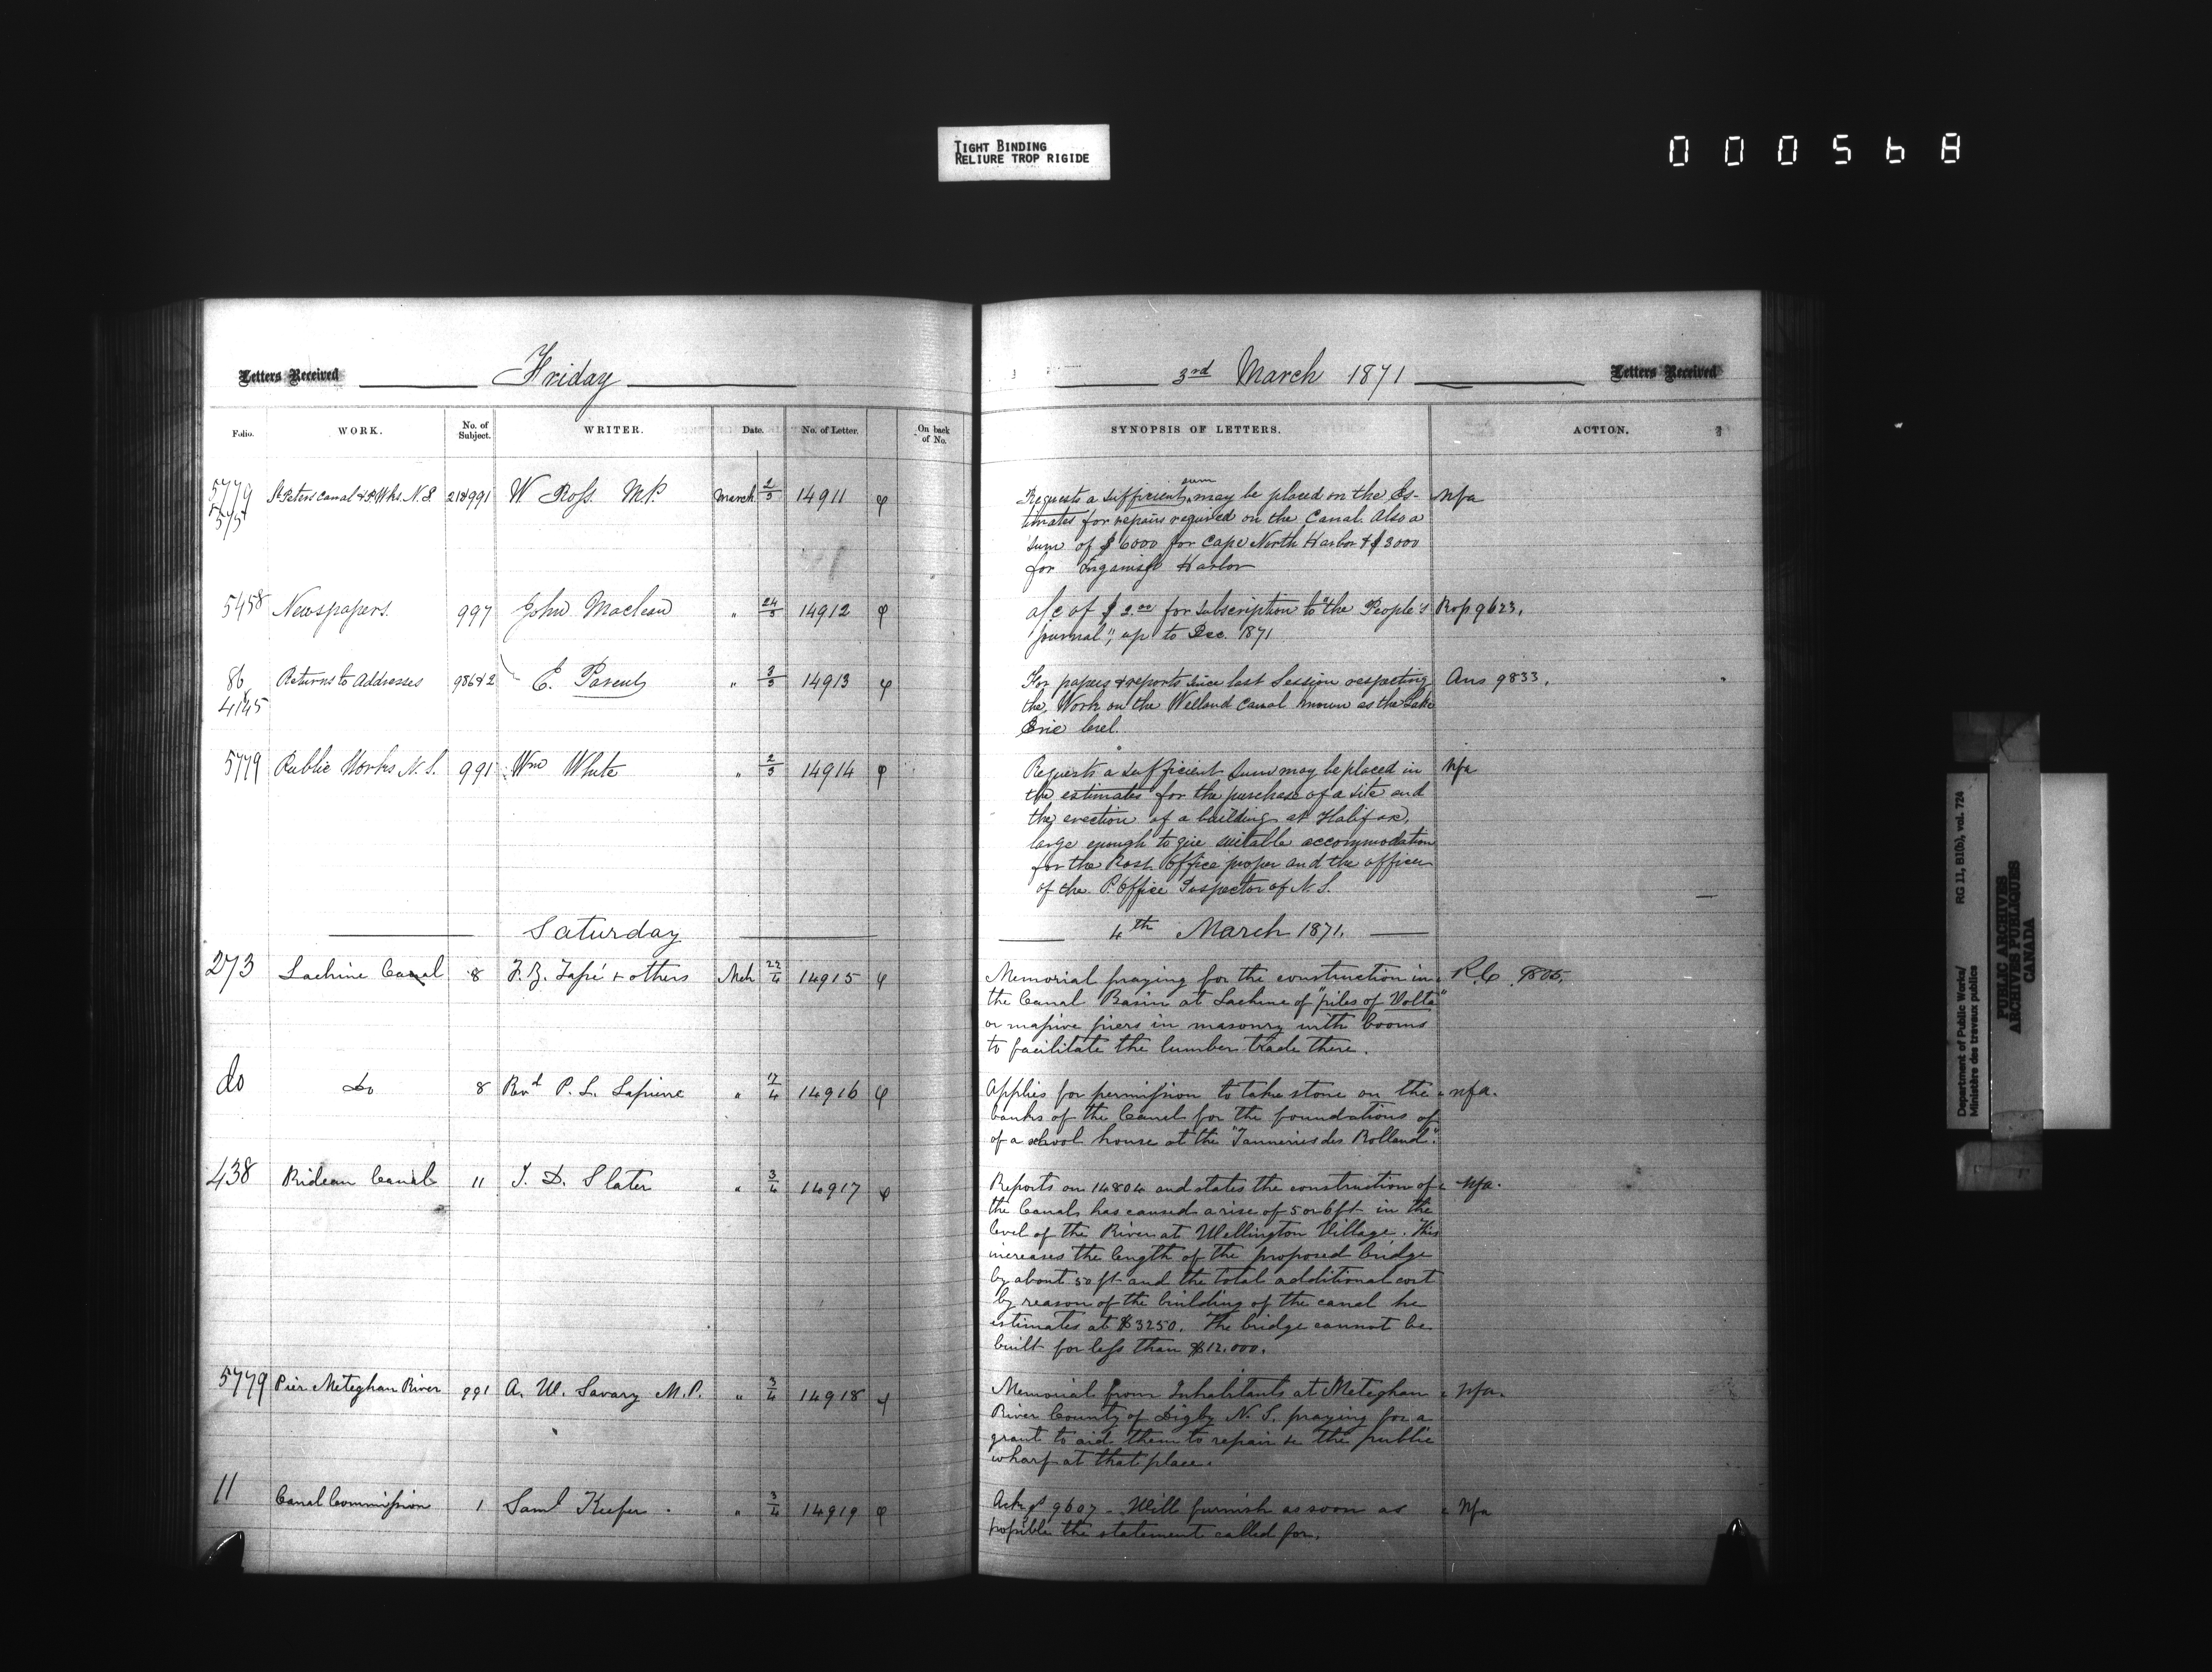 TIGHT BINDING
RELIURE TROP RIGIDE
000568
Letters Received Friday 3rd March 1871 Letters Received
Folio. WORK. No. of Subject. WRITER. Date. No. of Letter. On back of No. SYNOPSIS OF LETTERS. ACTION.
5779 St Peters Canal & P. Wks. N.S 21&991 W Ross. MP. March 2/3 14911 Requests a sufficient sum may be placed on the Es- Nfa
575 timates for repairs required on the Canal. Also a
sum of $6000 for Cape North Harbor & $3000
for Inganish Harbor
5458 Newspapers. 997 John Maclean " 24/3 14912 a/c of $2.00 for subscription to "the People's Rep 9623.
Journal", up to Dec. 1871
86 Returns to Addresses 986&2 E. Parent " 3/3 14913 For papers & reports since last Session respecting Ans 9833.
4145 the Work on the Welland Canal known as the Lake
Erie level.
5779 Public Works N.S. 991 Wm White " 2/3 14914 Requests a sufficient sum may be placed in Nfa
the estimates for the purchase of a site and
the erection of a building at Halifax,
large enough to give suitable accommodation
for the Post Office proper and the offices
of the P. Office Inspector of N.S.
Saturday 4th March 1871.
273 Lachine Canal 8 & others Mch 22/4 14915 Memorial praying for the construction in R.C. 9805.
the Canal Basin at Lachine of "piles of Volta"
or massive piers in masonry with booms
to facilitate the lumber trade there.
do Do 8 Revd P. L. Lapierre " 17/4 14916 Applies for permission to take stone on the nfa.
banks of the Canal for the foundations of
of a school house at the "Tanneries des Rolland".
438 Rideau Canal 11 J. D. Slater " 3/4 14917 Reports on 14804 and states the construction of Nfa.
the Canal has caused a rise of 5 or 6 ft in the
level of the River at Wellington Village. This
increases the length of the proposed bridge
by about 50 ft and the total additional cost
by reason of the building of the canal he
estimates at $3250. The bridge cannot be
built for less than $12.000.
5779 Pier Meteghan River 991 A. W. Savary M.P. " 3/4 14918 Memorial from Inhabitants at Meteghan Nfa.
River County of Digby N.S. praying for a
grant to aid them to repair the public
wharf at that place.
11 Canal Commission 1 Saml Keefer. " 3/4 14919 Ackgs 9607 - Will furnish as soon as Nfa
possible the statement called for.
Department of Public Works/ RG 11, B1(b), vol. 724
Ministère des travaux publics
PUBLIC ARCHIVES
ARCHIVES PUBLIQUES
CANADA